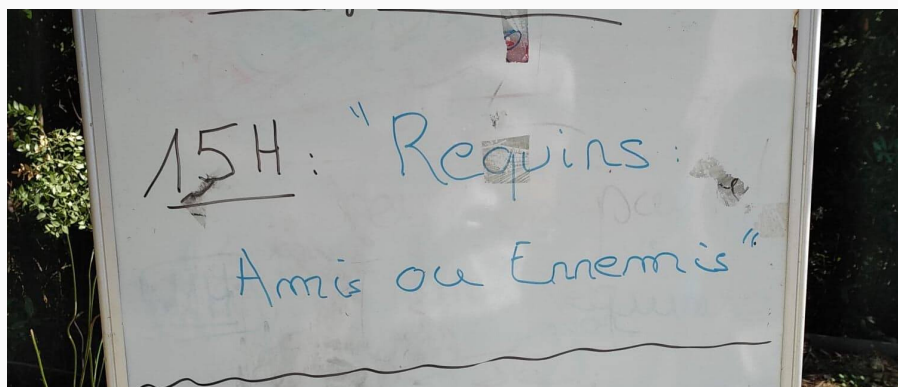 15H: "Requins:
Amis ou Ennemis"